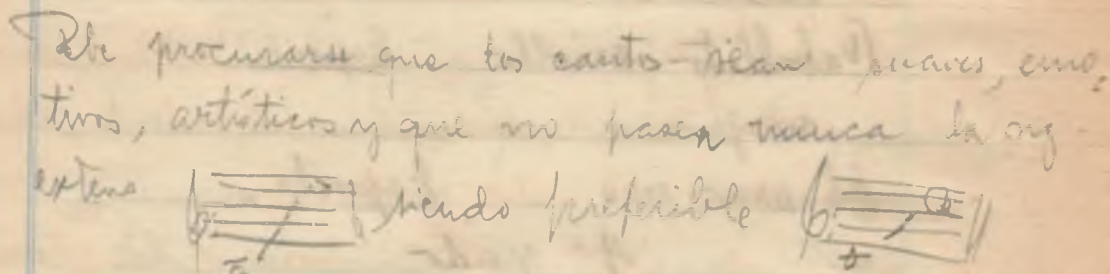 Debe procurarse que los cantos sean suaves, emo-
tivos, artísticos y que no pasen nunca la
extens siendo preferible